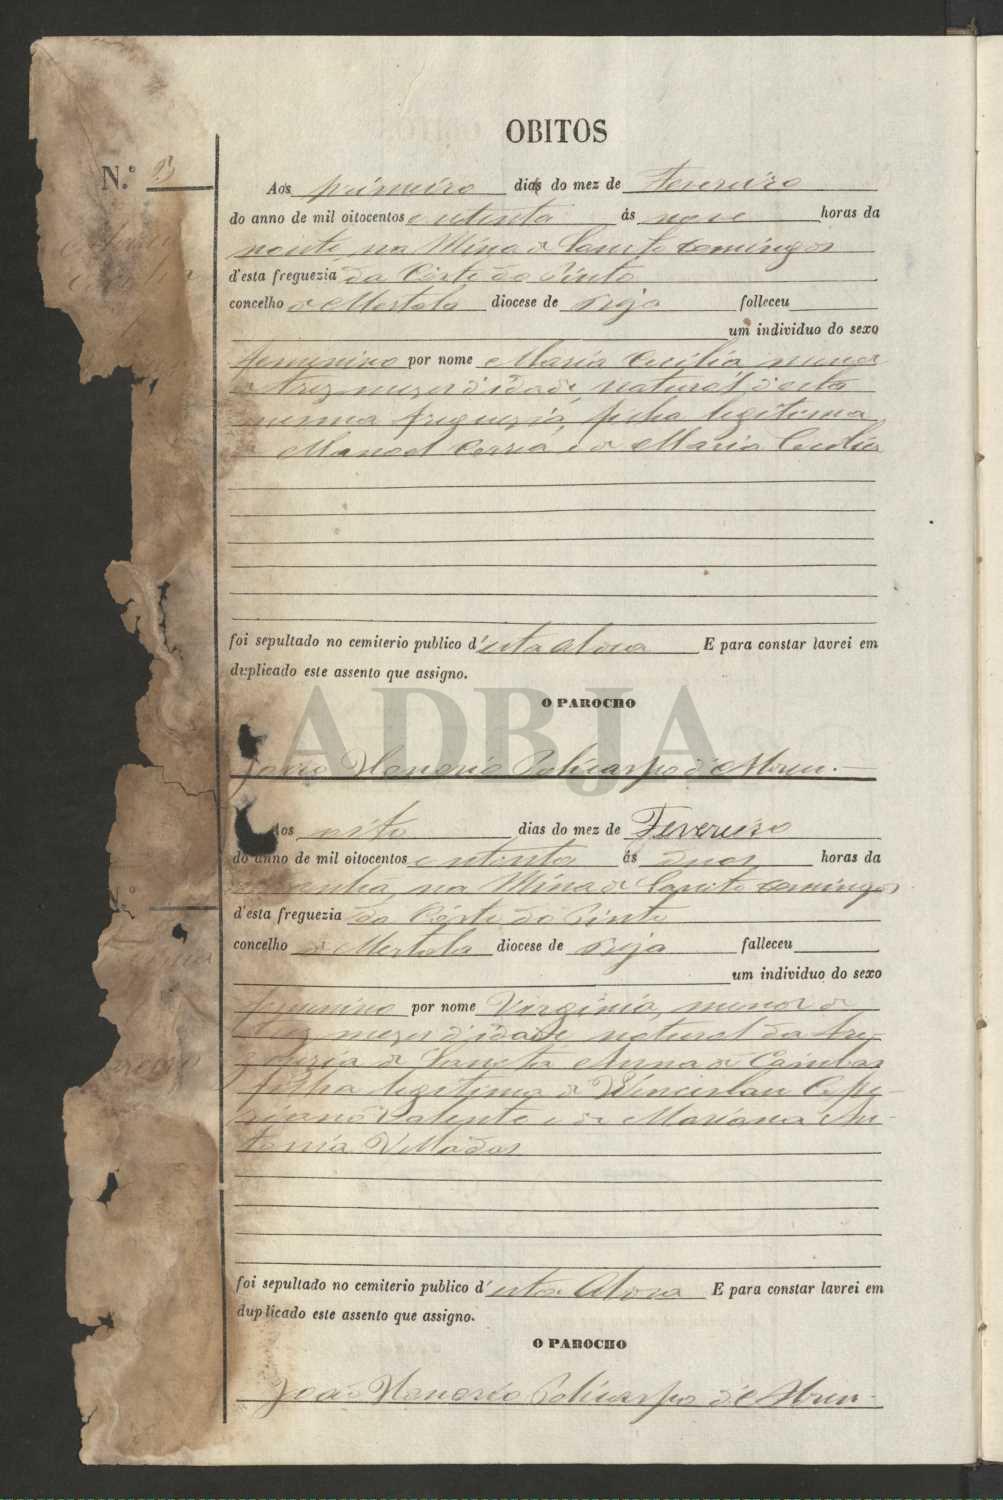 OBITOS
N.º 13
Aos primeiro dias do mez de Fevereiro
do anno de mil oitocentos e oitenta ás nove horas da
noute, na Mina de Sancto Domingos
d'esta freguezia da Côrte do Pinto
concelho de Mertola diocese de Beja falleceu
um individuo do sexo
femenino por nome Maria Cecilia, menor
de trez mezes d'idade, natural d'esta
mesma freguezia, filha legitima
de Manoel e de Maria Cecilia
foi sepultado no cemiterio publico d'esta Aldeia E para constar lavrei em
duplicado este assento que assigno.
O PAROCHO
João Polycarpo d'Abreu.
ADBJA
Aos oito dias do mez de Fevereiro
do anno de mil oitocentos e oitenta ás duas horas da
na Mina de Sancto Domingos
N.º
d'esta freguezia da Côrte do Pinto
concelho de Mertola diocese de Beja falleceu
um individuo do sexo
femenino por nome Virginia, menor de
mezes d'idade, natural da fre-
guezia de Sancta Anna de Cambas
filha legitima de Wenceslau
Valente e de Marianna An-
tonia
foi sepultado no cemiterio publico d'esta Aldeia E para constar lavrei em
duplicado este assento que assigno.
O PAROCHO
João Polycarpo d'Abreu.